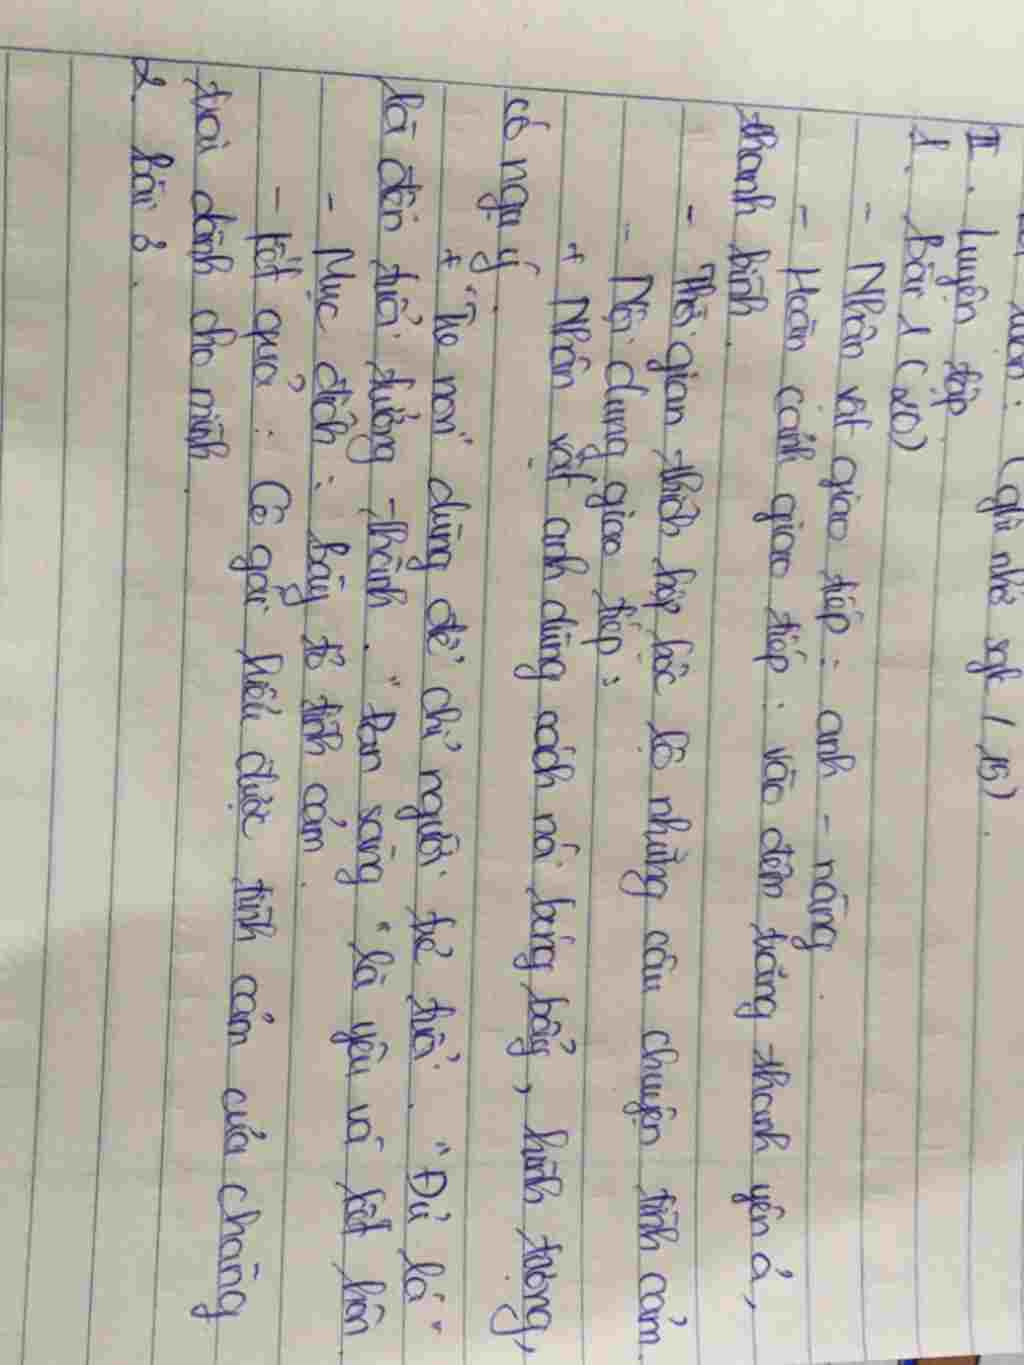 luận : (ghi nhớ sgk / 15).
II. Luyện tập
1. Bài 1 (20)
- Nhân vật giao tiếp : anh - nàng.
- Hoàn cảnh giao tiếp : vào đêm trăng thanh yên ả,
thanh bình.
- Thời gian thích hợp bộc lộ những câu chuyện tình cảm.
- Nội dung giao tiếp :
+ Nhân vật anh dùng cách nói bóng bẩy, hình tượng,
có ngụ ý.
+ "Tre non" dùng để chỉ người trẻ tuổi. "Đủ lá"
là đến tuổi trưởng thành. "Đan sàng" là yêu và kết hôn
- Mục đích : bày tỏ tình cảm.
- Kết quả : Cô gái hiểu được tình cảm của chàng
trai dành cho mình.
2. Bài 3.